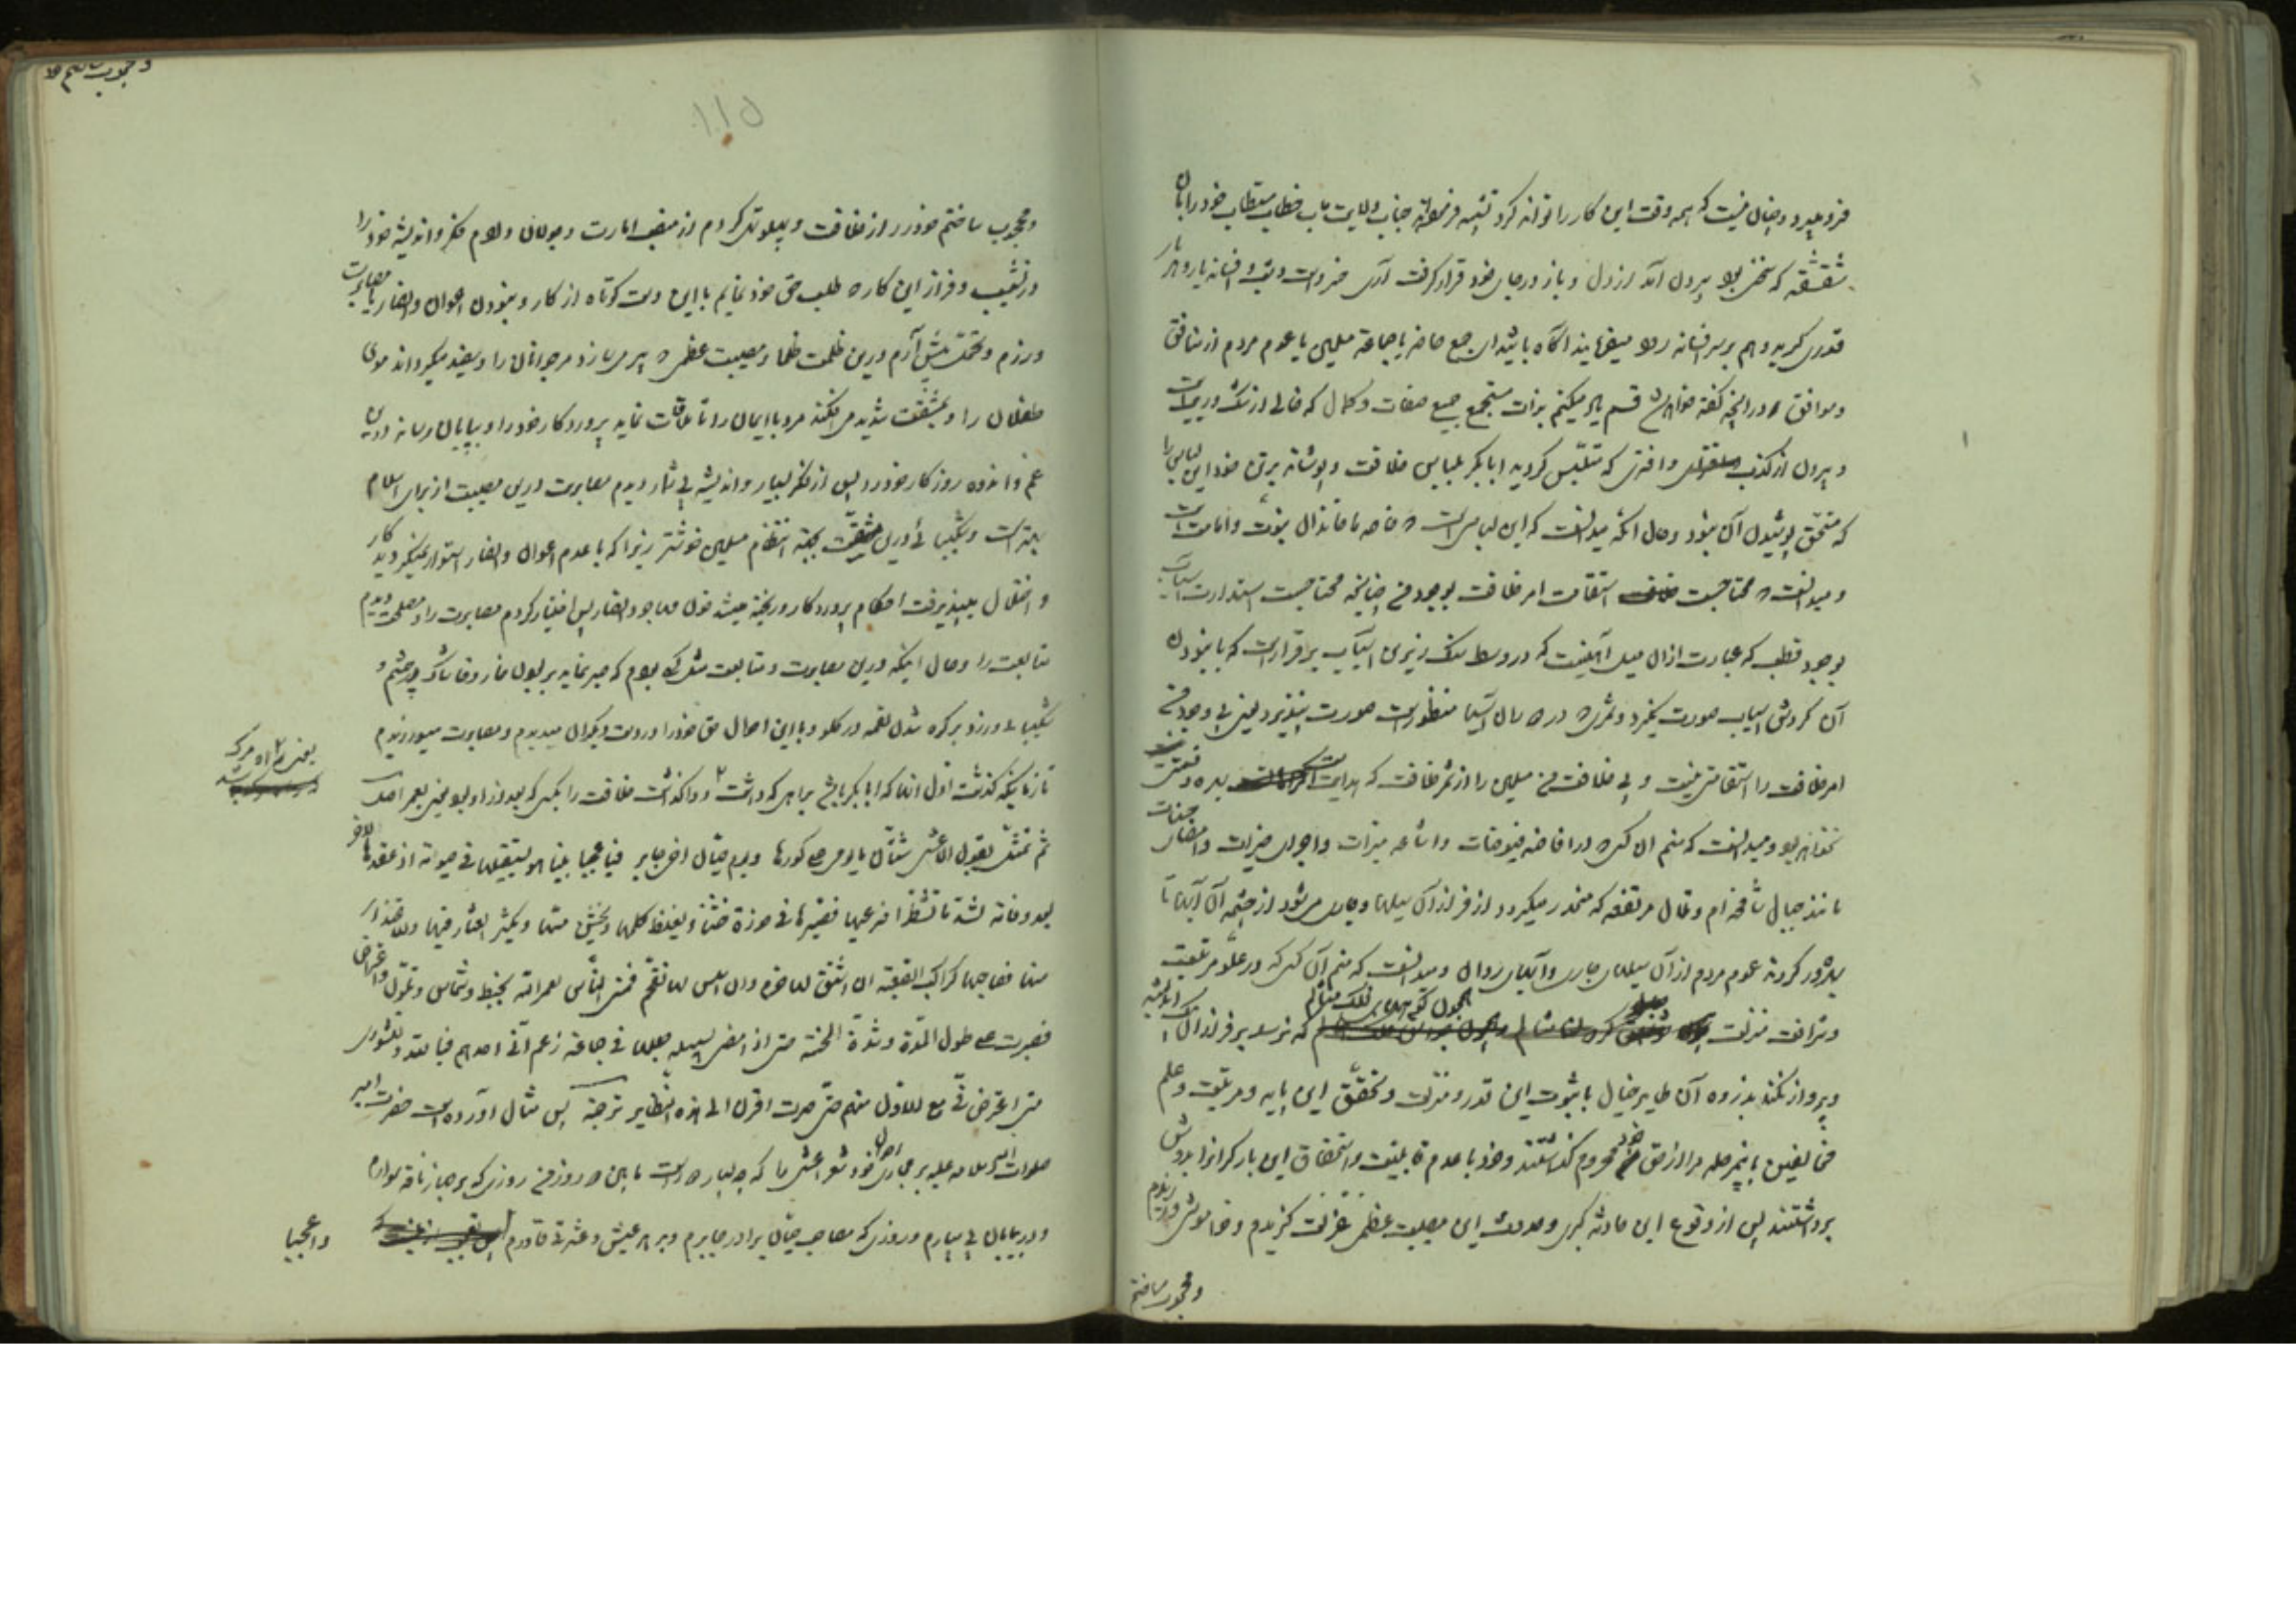 فرو میرود و چنان نیست که همه وقت این کار را توانه کرد تتمه فرموده جناب ولایت مآب خطاب مستطاب خود را بان
شقشقه که سخنی بود بیرون آمد از دل و باز در جای خود قرار گرفت
قدری گریه و هم بر سر افسانه رود میفرماید آگاه باشید ای جمع حاضر یا جماعة مسلمین یا عموم مردم از منافق
و موافق که در آنچه گفته خواهد شد قسم یاد میکنم بذات مستجمع جمیع صفات و کمال که خالی از شک و ریب است
و بیرون از کذب و افتری که متلبس گردید ابا بکر بلباس خلافت و پوشانه بر تن خود این لباس را
که مستحق پوشیدن آن نبود و حال آنکه میدانست که این لباس است که خاصه ما خاندان نبوت و امامت است
و میدانست که محتاجست استقامت امر خلافت بوجود من چنانچه محتاجست استدارت آسیاب
بوجود قطب که عبارت از آن میل آهنیست که در وسط سنگ زیرین آسیاب برقرار است که با نبودن
آن گردش آسیاب صورت نگیرد و ثمری که در آن آسیا منظور است صورت نپذیرد یعنی بی وجود من
امر خلافت را استقامتی نیست و بی خلافت من مسلمین را از ثمر خلافت که هدایت است بهره و منفعت
نخواهد بود و میدانست که منم آن کسی که در افاضه فیوضات و اشاعه مبرات و اجرای خیرات و
مانند جبال شامخه ام و تلال مرتفعه که منحدر میگردد از فراز آن سیلها و جاری میشود از چشمه آن آبها تا
بهره ور گردند عموم مردم از آن سیلهای جاری و آبهای روان و میدانست که منم آن کسی که در علو مرتبت
و شرافت منزلت چون کوههای فلک مثالم که نرسد بر فراز آن اندیشه
و پرواز نکند بذروه آن طایر خیال با ثبوت این قدر و منزلت و تحقق این پایه و مرتبت و علم
مخالفین باینمرحله مرا از حق خود محروم گذاشتند و خود با عدم قابلیت و استحقاق این بار گرانرا بدوش
برداشتند پس از وقوع این حادثه کبری و حدوث این مصیبت عظمی عزلت گزیدم و خاموشی ورزیدم
و محجوب ساختم
۱۱۵
و محجوب ساختم خود را از خلافت و پهلو تهی کردم از منصب امارت و جولان دادم فکر و اندیشه خود را
در نشیب و فراز این کار که طلب حق خود نمایم با این دست کوتاه از کار و نبودن اعوان و انصار یا مصابرت
ورزم و تحمل پیش آرم درین ظلمت ظلما و مصیبت عظمی که پیر میسازد مر جوانان را و سفید میگرداند موی
طفلان را و بمشقت شدید می افکند مرد با ایمان را تا ملاقات نماید پروردگار خود را و بپایان رساند درین
غم و اندوه روزگار خود را پس از فکر بسیار و اندیشه بی شمار دیدم مصابرت درین مصیبت از برای اسلام
بهتر است و شکیبائی درین مشقت بجهة انتظام مسلمین خوشتر زیرا که با عدم اعوان و انصار استوار نمیگردید کار
و اختلال می پذیرفت احکام پروردگار و ریخته میشد خون مهاجر و انصار پس اختیار کردم مصابرت را و مصلحت دیدم
متابعت را و حال اینکه درین مصابرت و متابعت مثل کسی بودم که صبر نماید بر بودن خار و خاشاک در چشم و
شکیبائی ورزد بر گره شدن لقمه در گلو و با این احوال حق خود را در دست دیگران میدیدم و مصابرت میورزیدم
تا زمانیکه گذشت اول آنها که ابا بکر باشد براهی که داشت و واگذاشت خلافت را بکسی که بعد از او بود یعنی بعمر
ثم تمثل بقول الاعشی شتان ما یومی علی کورها و یوم حیان اخی جابر فیا عجبا بینا هو یستقیلها فی حیوته اذ عقدها لآخر
بعد وفاته لشد ما تشطرا ضرعیها فصیرها فی حوزة خشناء یغلظ کلمها و یخشن مسها و یکثر العثار فیها و الاعتذار
منها فصاحبها کراکب الصعبة ان اشنق لها خرم و ان اسلس لها تقحم فمنی الناس لعمر الله بخبط و شماس و تلون و اعتراض
فصبرت علی طول المدة و شدة المحنة حتی اذا مضی لسبیله جعلها فی جماعة زعم انی احدهم فیا لله و للشوری
متی اعترض فی مع الاول منهم حتی صرت اقرن الی هذه النظایر ترجمه پس مثال آورده است حضرت امیر
صلوات الله و سلامه علیه بر مجاری احوال خود شعر اعشی را که چه بسیار دور است مابین دو روز من روزی که بر جهاز ناقه سوارم
و در بیابان رهسپارم و روزی که مصاحب حیان برادر جابرم و بر هر عیش و عشرتی قادرم
وا عجبا